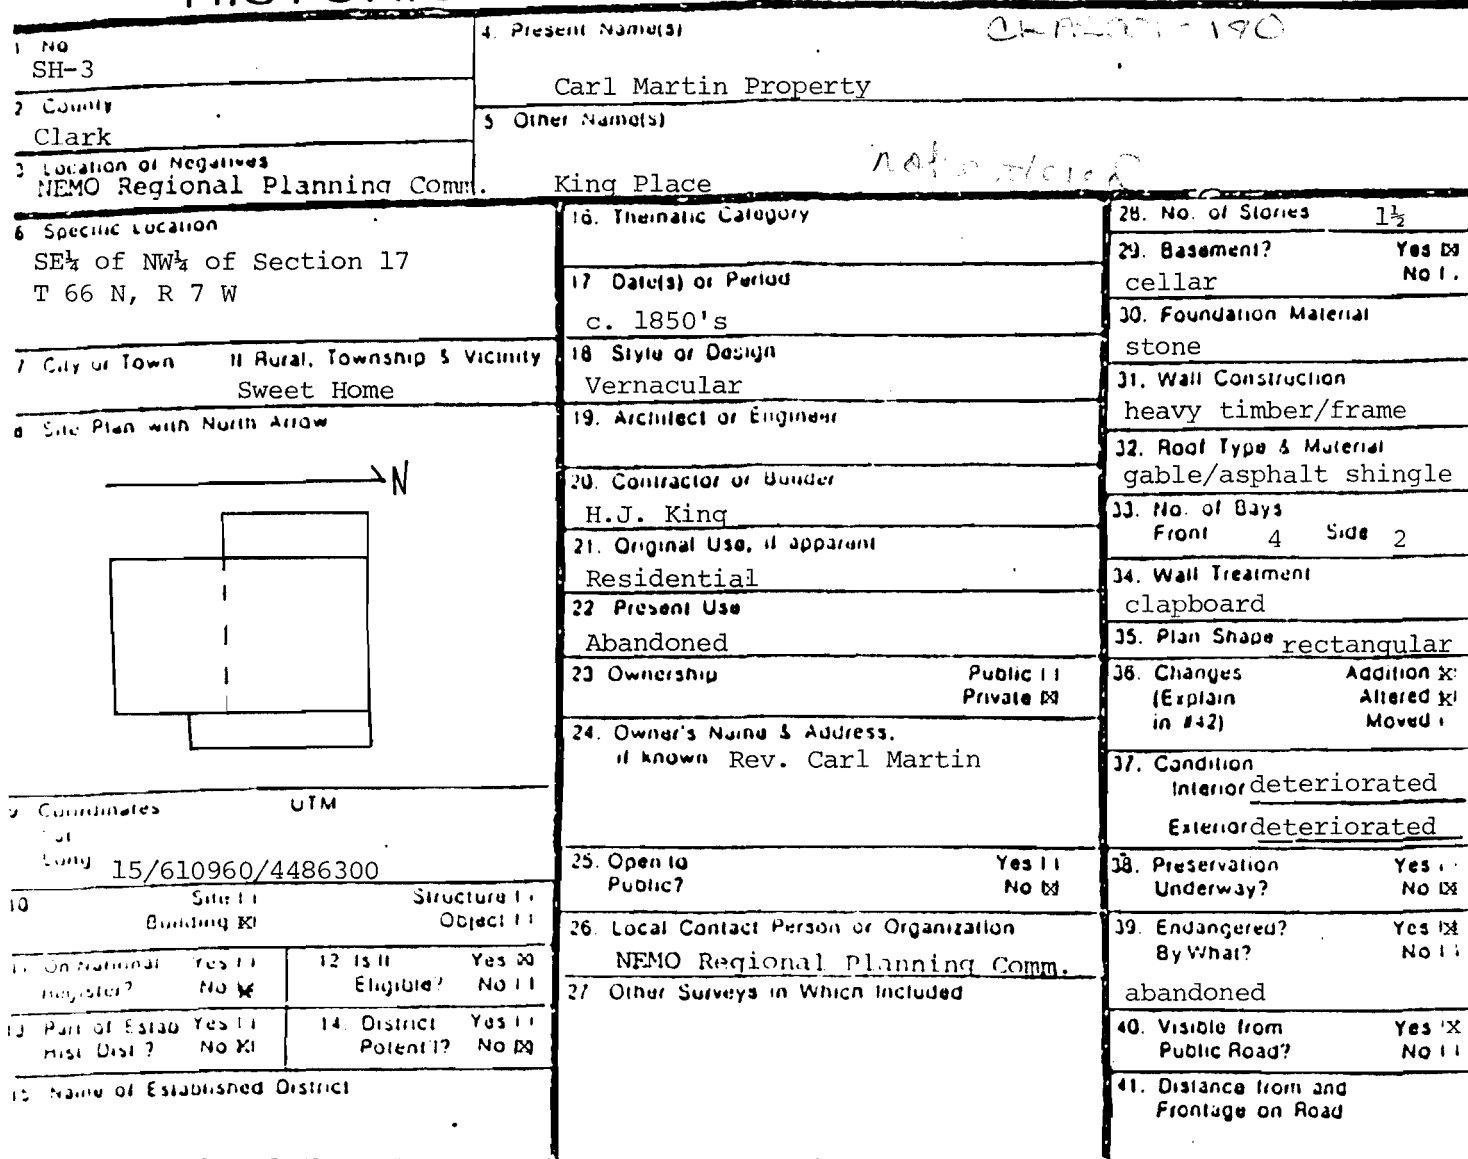 1 No
SH-3
2 County
Clark
3 Location of Negatives
NEMO Regional Planning Comm.
4. Present Name(s)
Carl Martin Property
5 Other Name(s)
King Place
6 Specific Location
SE¼ of NW¼ of Section 17
T 66 N, R 7 W
7 City or Town If Rural, Township & Vicinity
Sweet Home
8 Site Plan with North Arrow
N
9 Coordinates UTM
Lat
Long 15/610960/4486300
10 Site Structure
Building Object
11. On National Register? Yes No
12 Is It Eligible? Yes No
13 Part of Estab Hist Dist? Yes No
14. District Potent'l? Yes No
15 Name of Established District
16. Thematic Category
17 Date(s) or Period
c. 1850's
18 Style or Design
Vernacular
19. Architect or Engineer
20. Contractor or Builder
H.J. King
21. Original Use, if apparent
Residential
22 Present Use
Abandoned
23 Ownership Public
Private
24. Owner's Name & Address,
if known Rev. Carl Martin
25. Open to Yes
Public? No
26. Local Contact Person or Organization
NEMO Regional Planning Comm.
27 Other Surveys in Which Included
28. No. of Stories 1½
29. Basement? Yes
cellar No
30. Foundation Material
stone
31. Wall Construction
heavy timber/frame
32. Roof Type & Material
gable/asphalt shingle
33. No. of Bays
Front 4 Side 2
34. Wall Treatment
clapboard
35. Plan Shape rectangular
36. Changes Addition
(Explain Altered
in #42) Moved
37. Condition
Interior deteriorated
Exterior deteriorated
38. Preservation Yes
Underway? No
39. Endangered? Yes
By What? No
abandoned
40. Visible from Yes
Public Road? No
41. Distance from and
Frontage on Road